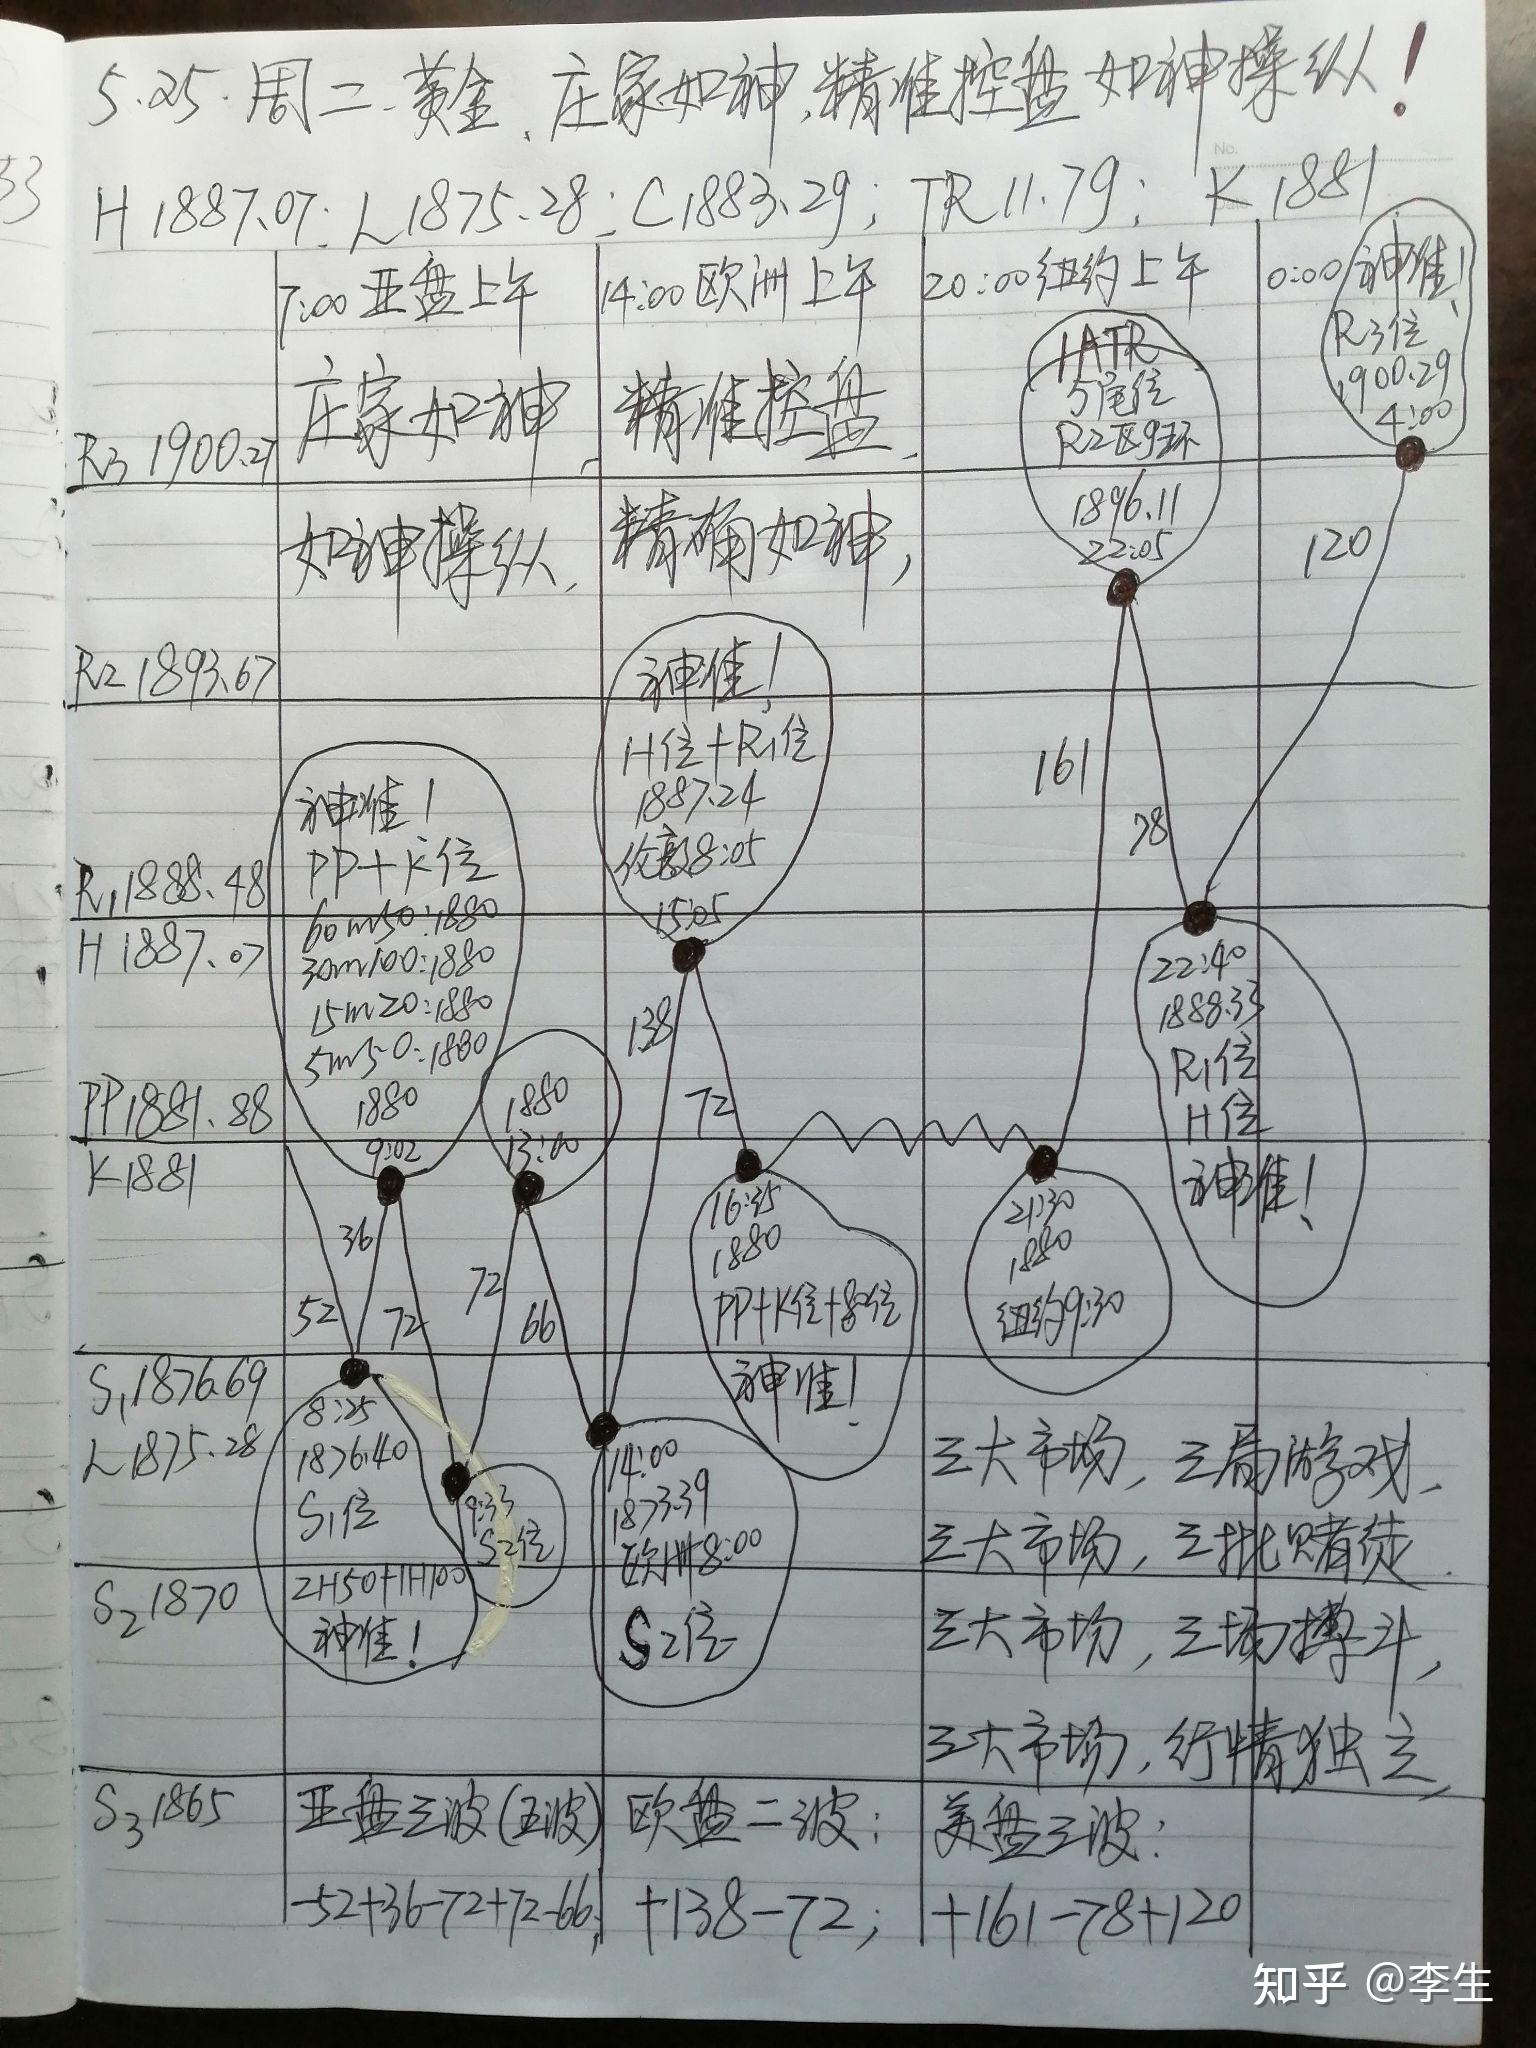 5.25.周二.黄金、庄家如神,精准控盘如神操纵!
No.
H1887.07; L1875.28; C1883.29; TR11.79; K1881
7:00亚盘上午
14:00欧洲上午
20:00纽约上午
0:00
神准!
R3位
1900.29
4:00
1ATR
5尾位
R2区9环
1896.11
22:05
庄家如神、
精准控盘、
R3 1900.27
如神操纵、
精确如神,
120
R2 1893.67
神准!
H位+R1位
1887.24
伦敦8:05
15:05
161
78
神准!
PP+K位
60m50:1880
30m100:1880
15m20:1880
5m50:1880
1880
9:02
R1 1888.48
H 1887.07
22:40
1888.33
R1位
H位
神准!
138
72
1880
13:00
PP1881.88
K1881
36
52
72
72
66
16:35
1880
PP+K位+80位
神准!
21:30
1880
纽约9:30
S1 1876.69
L1875.28
8:25
1876.40
S1位
2H50+1H100
神准!
9:33
S2位
14:00
1873.39
欧洲8:00
S2位
三大市场,三局游戏、
三大市场,三批赌徒.
三大市场,三场搏斗,
三大市场,行情独立、
S2 1870
S3 1865
亚盘三波(五波)
欧盘二波:
美盘三波:
-52+36-72+72-66;
+138-72;
+161-78+120
知乎 @李生